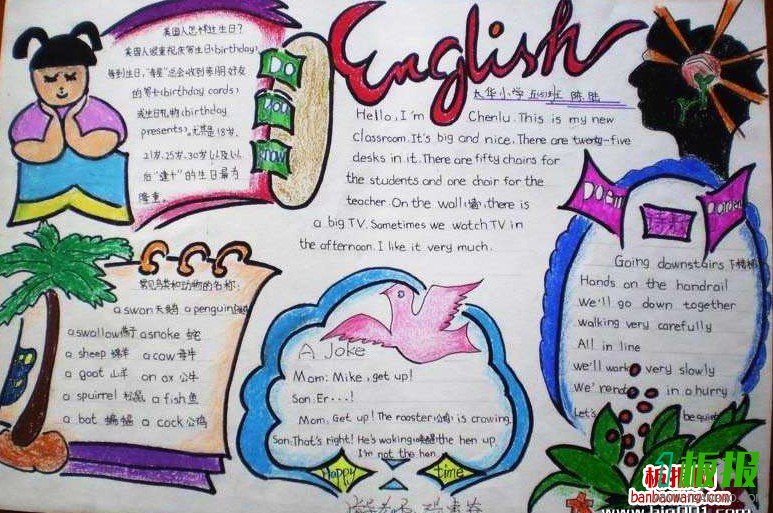 English
美国人怎样过生日?
美国人很重视庆贺生日(birthday),
每到生日,"寿星"总会收到亲朋好友
的贺卡(birthday cards)
或生日礼物(birthday
presents),尤其是18岁、
21岁、25岁、30岁以及以
后"逢十"的生日最为
隆重。
DO
you
know
Hello, I'm Chenlu. This is my new
classroom. It's big and nice. There are twenty-five
desks in it. There are fifty chairs for
the students and one chair for the
teacher. On the wall(墙), there is
a big TV. Sometimes we watch TV in
the afternoon. I like it very much.
常见鸟类和动物的名称:
a swan 天鹅 a penguin
a swallow 燕子 a snake 蛇
a sheep 绵羊 a cow 母牛
a goat 山羊 an ox 公牛
a squirrel 松鼠 a fish 鱼
a bat 蝙蝠 a cock 公鸡
A Joke
Mom: Mike, get up!
Son: Er···!
Mom: Get up! The rooster(公鸡) is crowing.
Son: That's right! He's waking the hen up.
I'm not the hen.
Happy time
Going downstairs 下楼梯
Hands on the handrail
We'll go down together
walking very carefully
All in line
we'll work very slowly
We're not in a hurry
Let's be quiet
板报
板报网
banbaowang.com